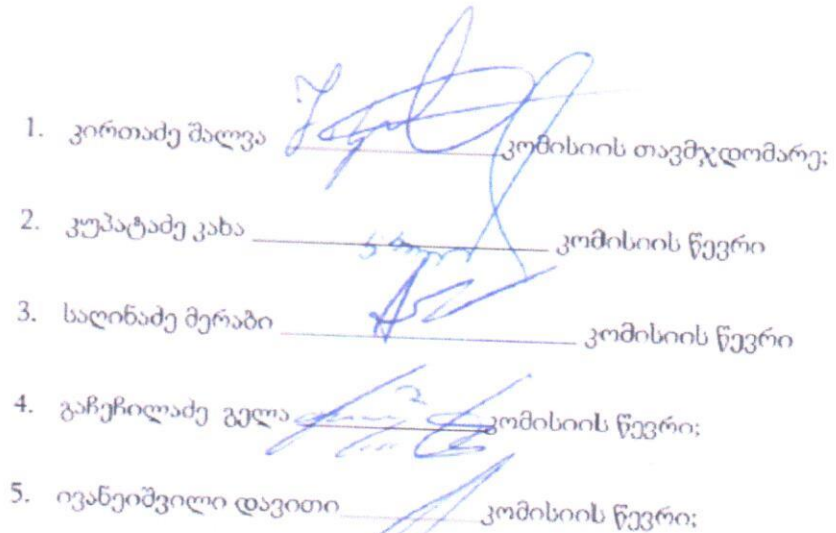 1. კირთაძე შალვა ____________ კომისიის თავმჯდომარე;
2. კუპატაძე კახა ____________ კომისიის წევრი
3. საღინაძე მერაბი ____________ კომისიის წევრი
4. გაჩეჩილაძე გელა ____________ კომისიის წევრი;
5. ივანეიშვილი დავითი ____________ კომისიის წევრი;